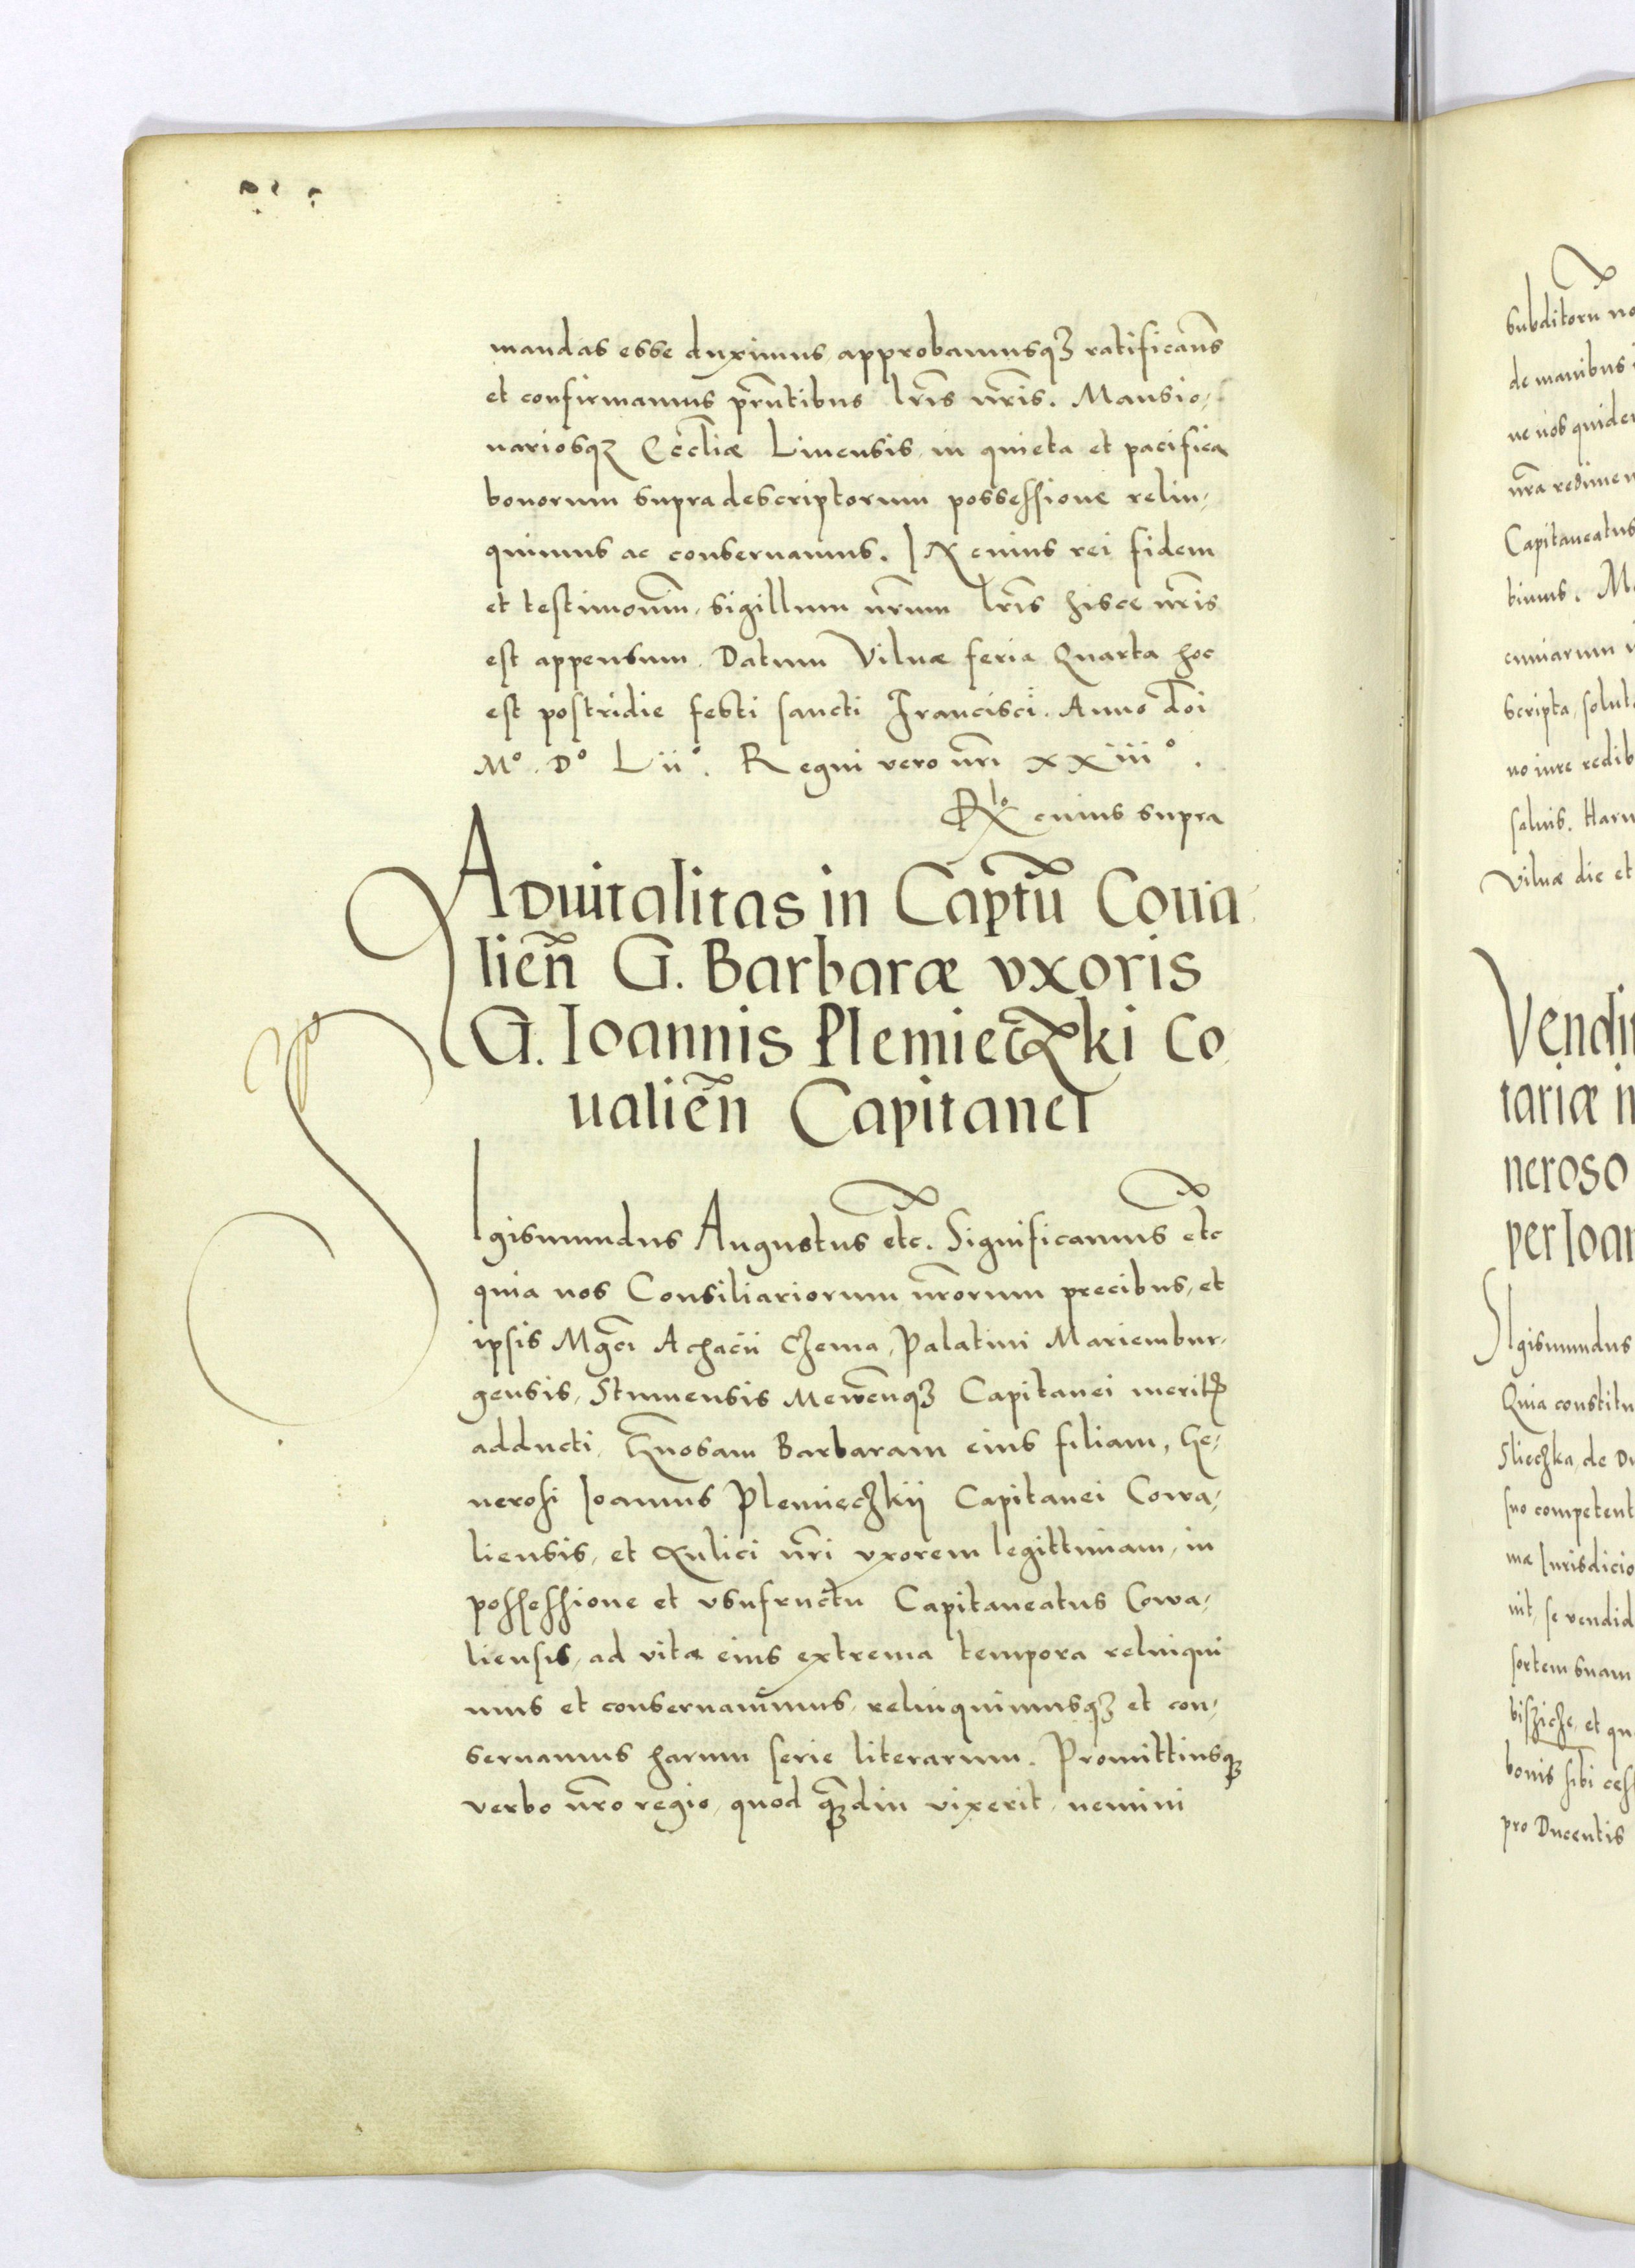 mandas esse duximus, approbamusqꝫ ratificam̃s
et confirmamus prñtibus lrĩs nrĩs. Mansio,
nariosqꝫ Ecclĩæ Livensis, in quieta et pacifica
bonorum supradescriptorum possessione relin,
quimus ac conservamus. In cuius rei fidem
et testimoniũ, sigillum nrũm lrĩs hisce nrĩs
est appensum. Datum Vilnæ feria Quarta hoc
est postridie festi sancti Francisci. Anno Dõi
Mº. Dº Lijº. Regni vero nrĩ xxiiiº.
Rlº cuius supra
Advitalitas in Captũ Coua,
lieñ G. Barbaræ vxoris
G. Ioannis Plemieczki Co,
ualieñ Capitanei
Sigismundus Augustus etc̃. Significamus etc̃
quia nos Consiliariorum nrõrum precibus, et
ipsis Mgcĩ Achacii Czema, Palatini Mariembur,
gensis, Stumensis Meweñqꝫ Capitanei meritꝭ
adducti, Gñosam Barbaram eius filiam, Ge,
nerosi Ioannis Plemieczkij Capitanei Cowa,
liensis, et Aulici nrĩ vxorem legittimam, in
possessione et vsufructu Capitaneatus Cowa,
liensis, ad vitæ eius extrema tempora relinqui
mus et conservamus, relinquimusqꝫ et con,
servamus harum serie literarum. Promittimusqꝫ
verbo nrõ regio, quod qꝫ̃diu vixerit, nemini
subditorũ no
de manibus
ne nos quidem
nrã redimen
Capitaneatus
bimus. Ma
cuniarum
scripta, solut
no iure redib
salvis. Haru
Vilnæ die et
Vendit
tariæ in
neroso
per Ioan
Sigismundus
Quia constitu
Sliechka, de Du
suo competent
mæ Iurisdicio
nit, se vendid
sortem suam
et qu
bonis sibi cess
pro Ducentis